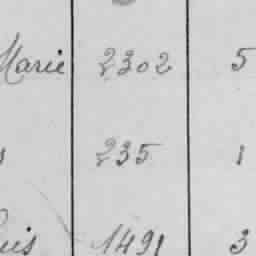 Marie 2302 5
s 235 1
uis 1491 3